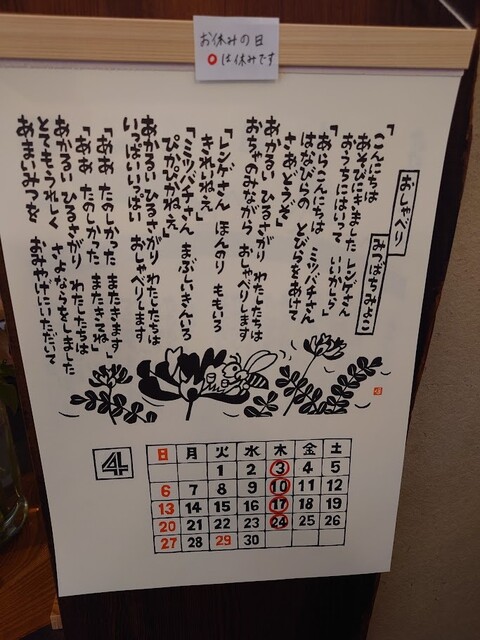 お休みの日
○は休みです
おしゃべり
みつばちみよこ
「こんにちは
あそびにきました レンゲさん
おうちにはいって いいかしら」
「あらこんにちは ミツバチさん
はなびらの とびらをあけて
さあどうぞ」
あかるい ひるさがり わたしたちは
おちゃのみながら おしゃべりします
「レンゲさん ほんのり ももいろ
きれいねえ」
「ミツバチさん まぶしいきんいろ
ぴかぴかねえ」
あかるい ひるさがり わたしたちは
いっぱいいっぱい おしゃべりします
「ああ たのしかった またきます」
「ああ たのしかった またきてね」
あかるい ひるさがり わたしたちは
とてもうれしく さよならをしました
あまいみつを おみやげにいただいて
4
日 月 火 水 木 金 土
1 2 3 4 5
6 7 8 9 10 11 12
13 14 15 16 17 18 19
20 21 22 23 24 25 26
27 28 29 30